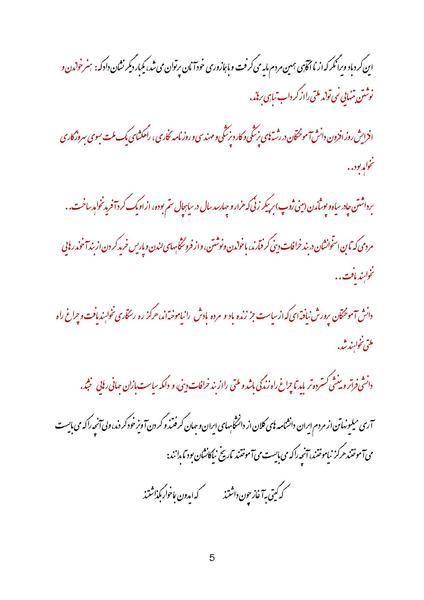 این گردباد ویرانگر که از ناآگاهی همین مردم مایه می‌گرفت و با جازوری خود آنان پرتوان می‌شد، یکبار دیگر نشان داد که: هنر خواندن و
نوشتن بتنهایی نمی‌تواند ملتی را از گرداب تباهی برهاند.
افزایش روز افزون دانش آموختگان در رشته‌های پزشکی و کارد پزشکی و مهندسی و روزنامه نگاری، راهگشای یک ملت بسوی بهروزگاری
نخواهد بود..
برداشتن چادر سیاه و پوشاندن (مینی ژوپ) بر پیکر زنی که هزار و چهارسد سال در سیاهچال ستم بوده، از او یک گردآفرید نخواهد ساخت..
مردمی که تا بن استخوانشان در بند خرافات دینی گرفتارند، با خواندن و نوشتن، و از فروشگاههای لندن و پاریس خرید کردن از بند آخوند رهایی
نخواهند یافت..
دانش آموختگان پرورش نیافته ای که از سیاست جز زنده باد و مرده باد را نیاموخته‌اند، هرگز ره رستگاری نخواهند یافت و چراغ راه
ملتی نخواهند شد.
دانشی فراتر و بینشی گسترده‌تر باید تا چراغ راه زندگی باشد و ملتی را از بند خرافات دینی، و دوالکه سیاست بازان جهانی رهایی بخشد.
آری میلیونها تن از مردم ایران دانشنامه‌های کلان از دانشگاههای ایران و جهان گرفتند و گردن آویز خود کردند، ولی آنچه را که می‌بایست
می‌آموختند هرگز نیاموختند، آنچه را که می‌بایست می‌آموختند تاریخ نیاکانشان بود تا بدانند:
که گیتی به آغاز چون داشتند که ایدون بما خوار بگذاشتند
5